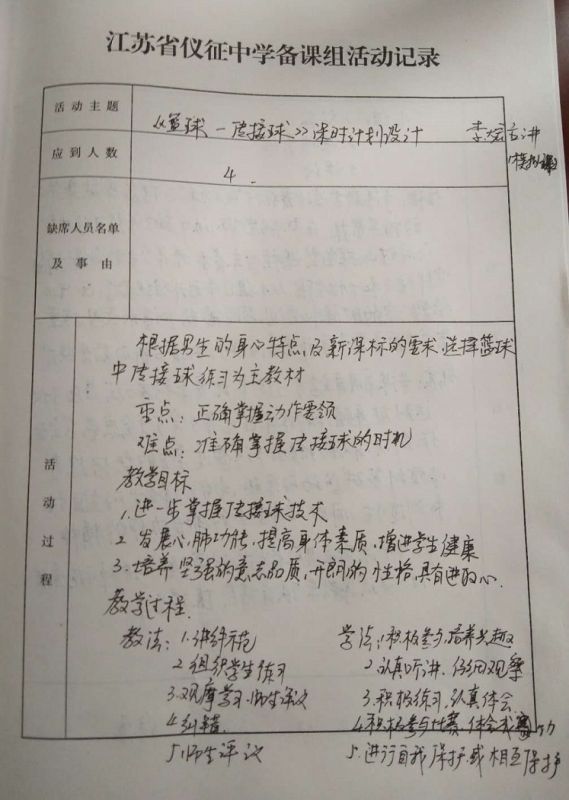 江苏省仪征中学备课组活动记录
活动主题 《篮球—传接球》课时计划设计 李 主讲
(模拟课)
应到人数 4.
缺席人员名单
及事由
活动过程
根据男生的身心特点及新课标的需求,选择篮球
中传接球练习为主教材
重点:正确掌握动作要领
难点:准确掌握传接球的时机
教学目标
1.进一步掌握传接球技术
2.发展心肺功能,提高身体素质,增进学生健康
3.培养坚强的意志品质,开朗的性格,具有进取心.
教学过程.
教法:1.讲解示范 学法:1.积极参与,培养兴趣
2.组织学生练习 2.认真听讲,仔细观察
3.观摩学习,师生评议 3.积极练习,认真体会.
4.纠错. 4.积极参与比赛,体会成功
5.师生评议 5.进行自我保护或相互保护